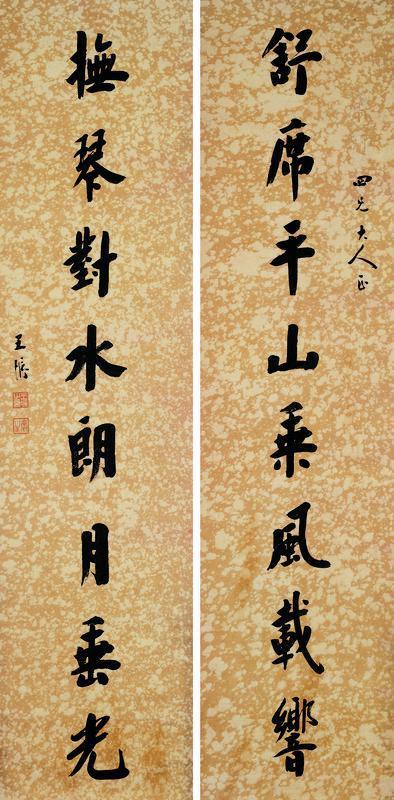 舒席平山乘風載響
四兄大人正
撫琴對水朗月垂光
王